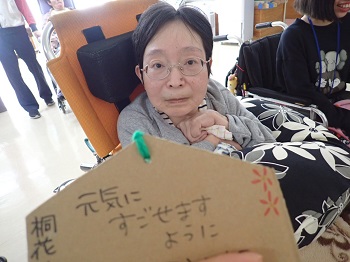 元気に
すごせます
ように
桐花